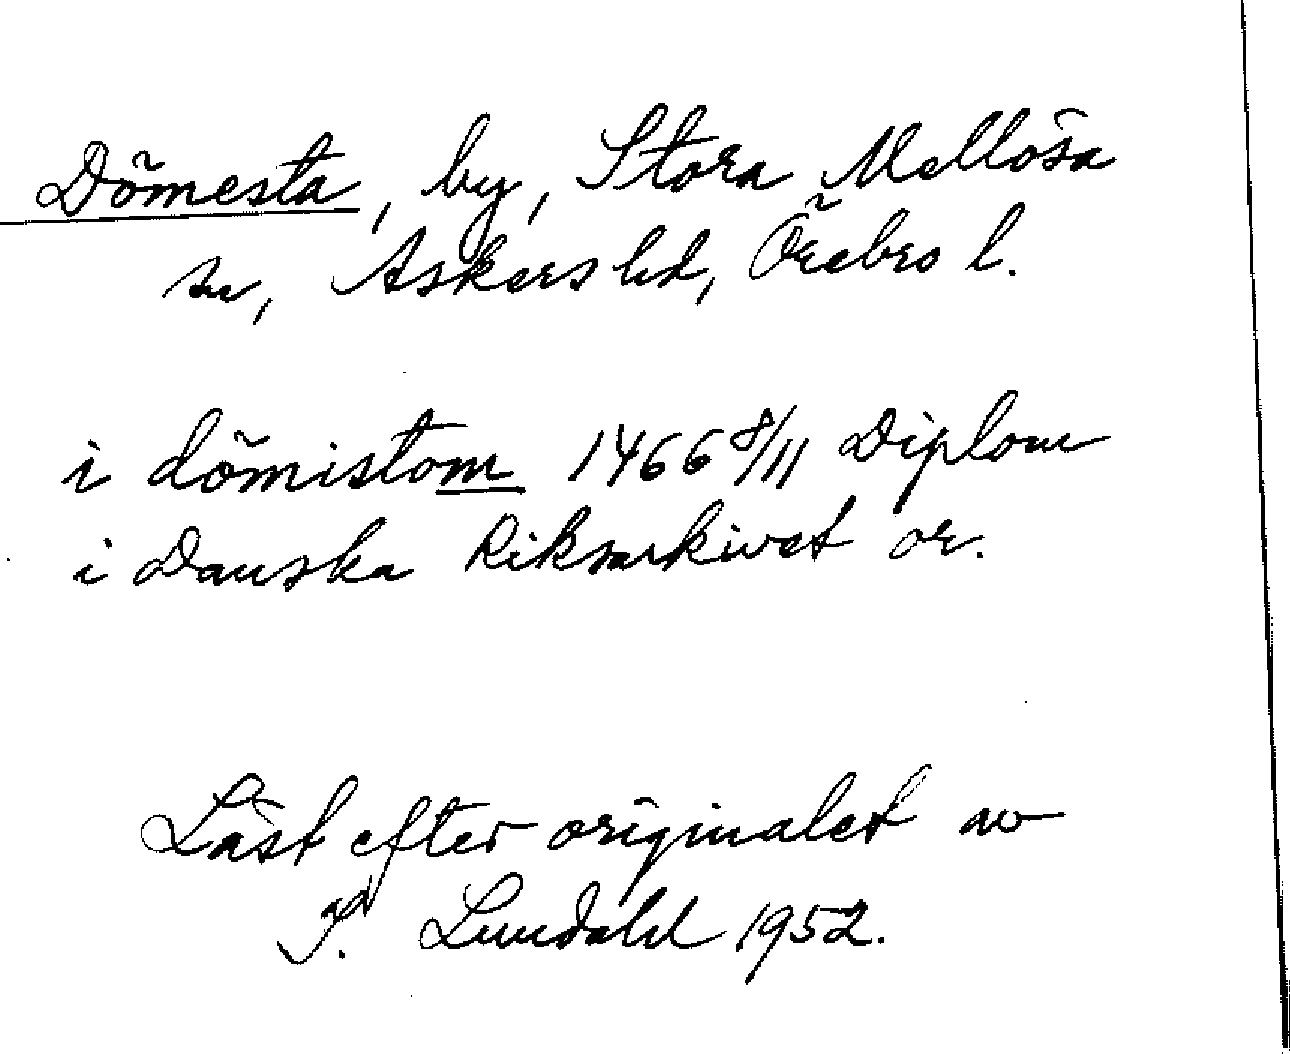 Dömesta, by, Stora Mellösa
sn, Askers hd, Örebro l.
i dömistom 1466 8/11 Diplom
i Danska Riksarkivet or.
Läst efter originalet av
I. Lundahl 1952.